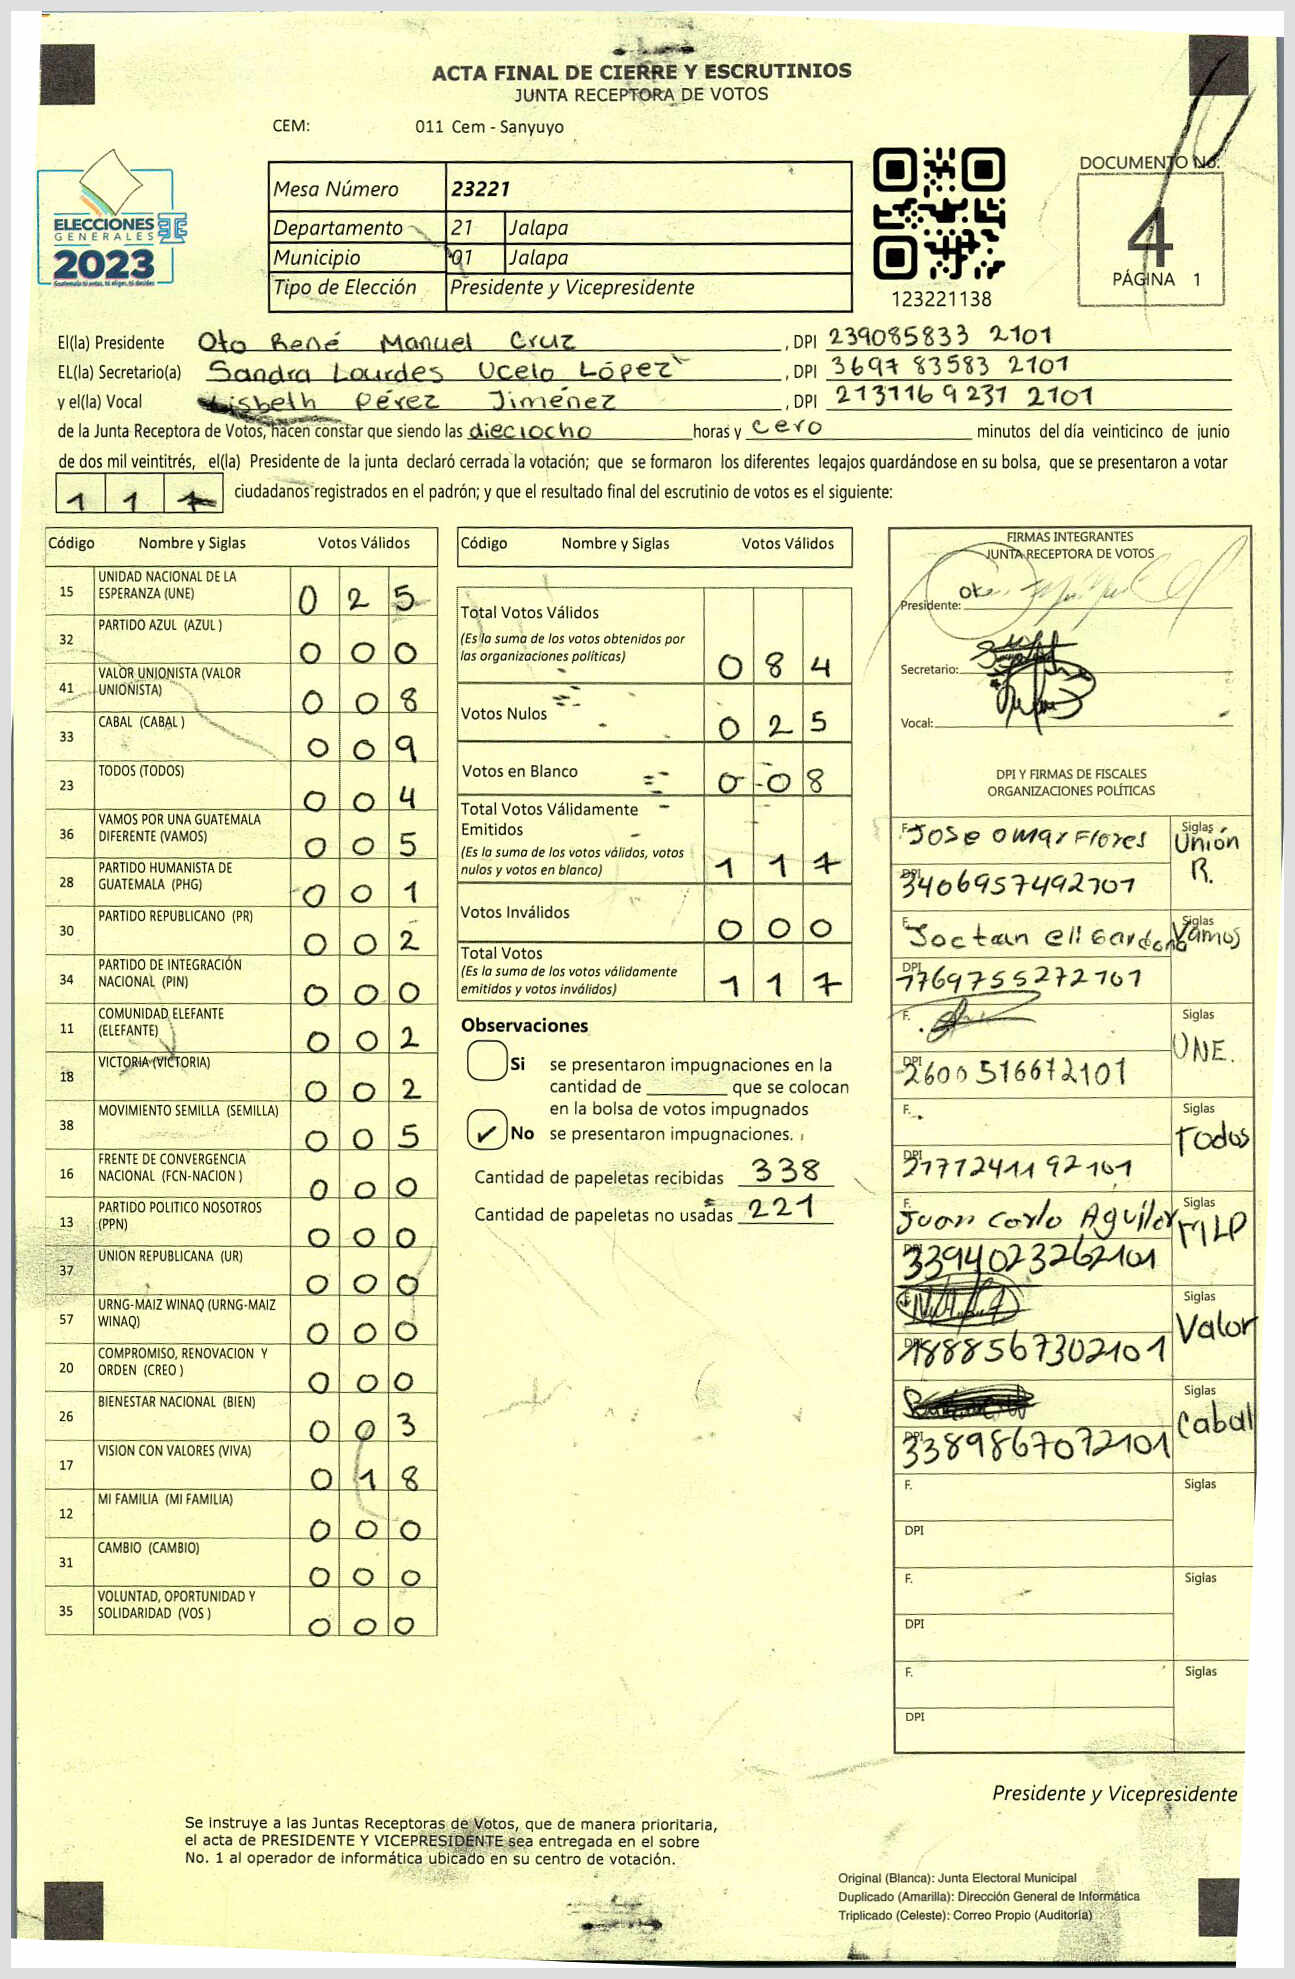 ACTA FINAL DE CIERRE Y ESCRUTINIOS
JUNTA RECEPTORA DE VOTOS
CEM: 011 Cem - Sanyuyo
ELECCIONES
GENERALES
2023
Mesa Número 23221
Departamento 21 Jalapa
Municipio 01 Jalapa
Tipo de Elección Presidente y Vicepresidente
123221138
DOCUMENTO No.
4
PÁGINA 1
El(la) Presidente Oto René Manuel Cruz, DPI 239085833 2101
EL(la) Secretario(a) Sandra Lourdes Ucelo López, DPI 3697 83583 2101
y el(la) Vocal Lisbeth Pérez Jiménez, DPI 213116 9231 2101
de la Junta Receptora de Votos, hacen constar que siendo las dieciocho horas y cero minutos del día veinticinco de junio
de dos mil veintitrés, el(la) Presidente de la junta declaró cerrada la votación; que se formaron los diferentes legajos guardándose en su bolsa, que se presentaron a votar
1 1 7 ciudadanos registrados en el padrón; y que el resultado final del escrutinio de votos es el siguiente:
Código Nombre y Siglas Votos Válidos
15 UNIDAD NACIONAL DE LA ESPERANZA (UNE) 0 2 5
32 PARTIDO AZUL (AZUL ) 0 0 0
41 VALOR UNIONISTA (VALOR UNIONISTA) 0 0 8
33 CABAL (CABAL ) 0 0 9
23 TODOS (TODOS) 0 0 4
36 VAMOS POR UNA GUATEMALA DIFERENTE (VAMOS) 0 0 5
28 PARTIDO HUMANISTA DE GUATEMALA (PHG) 0 0 1
30 PARTIDO REPUBLICANO (PR) 0 0 2
34 PARTIDO DE INTEGRACIÓN NACIONAL (PIN) 0 0 0
11 COMUNIDAD ELEFANTE (ELEFANTE) 0 0 2
18 VICTORIA (VICTORIA) 0 0 2
38 MOVIMIENTO SEMILLA (SEMILLA) 0 0 5
16 FRENTE DE CONVERGENCIA NACIONAL (FCN-NACION ) 0 0 0
13 PARTIDO POLITICO NOSOTROS (PPN) 0 0 0
37 UNION REPUBLICANA (UR) 0 0 0
57 URNG-MAIZ WINAQ (URNG-MAIZ WINAQ) 0 0 0
20 COMPROMISO, RENOVACION Y ORDEN (CREO ) 0 0 0
26 BIENESTAR NACIONAL (BIEN) 0 0 3
17 VISION CON VALORES (VIVA) 0 1 8
12 MI FAMILIA (MI FAMILIA) 0 0 0
31 CAMBIO (CAMBIO) 0 0 0
35 VOLUNTAD, OPORTUNIDAD Y SOLIDARIDAD (VOS ) 0 0 0
Código Nombre y Siglas Votos Válidos
Total Votos Válidos
(Es la suma de los votos obtenidos por
las organizaciones políticas) 0 8 4
Votos Nulos 0 2 5
Votos en Blanco 0 0 8
Total Votos Válidamente
Emitidos
(Es la suma de los votos válidos, votos
nulos y votos en blanco) 1 1 7
Votos Inválidos 0 0 0
Total Votos
(Es la suma de los votos válidamente
emitidos y votos inválidos) 1 1 7
Observaciones
Si se presentaron impugnaciones en la
cantidad de ________ que se colocan
en la bolsa de votos impugnados
✓ No se presentaron impugnaciones.
Cantidad de papeletas recibidas 338
Cantidad de papeletas no usadas 221
FIRMAS INTEGRANTES
JUNTA RECEPTORA DE VOTOS
Presidente:
Secretario:
Vocal:
DPI Y FIRMAS DE FISCALES
ORGANIZACIONES POLÍTICAS
F. Jose Omar Flores Siglas Unión R.
DPI 3406957492101
F. Joctan Eli Cardona Siglas Vamos
DPI 1769755272101
F. Siglas UNE.
DPI 2600516672101
F. Siglas Todos
DPI 2177241192101
F. Juan Carlo Aguilar Siglas MLP
DPI 3394023262101
F. Siglas Valor
DPI 1888567302101
F. Siglas Cabal
DPI 3389867072101
F. Siglas
DPI
F. Siglas
DPI
F. Siglas
DPI
Presidente y Vicepresidente
Se instruye a las Juntas Receptoras de Votos, que de manera prioritaria,
el acta de PRESIDENTE Y VICEPRESIDENTE sea entregada en el sobre
No. 1 al operador de informática ubicado en su centro de votación.
Original (Blanca): Junta Electoral Municipal
Duplicado (Amarilla): Dirección General de Informática
Triplicado (Celeste): Correo Propio (Auditoría)